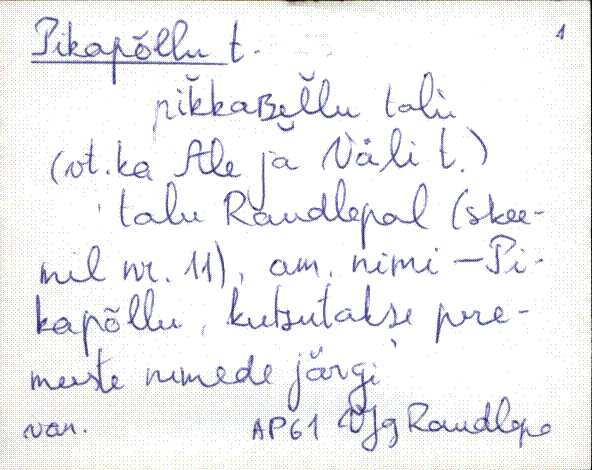 1
Pikapõllu t.
pikkaBellu talu
(vt. ka Ale ja Väli t.)
talu Raudlepal (skee-
mil nr. 11), am. nimi – Pi-
kapõllu, kutsutakse pere-
meeste nimede järgi
van. AP61 VJg Raudlepa